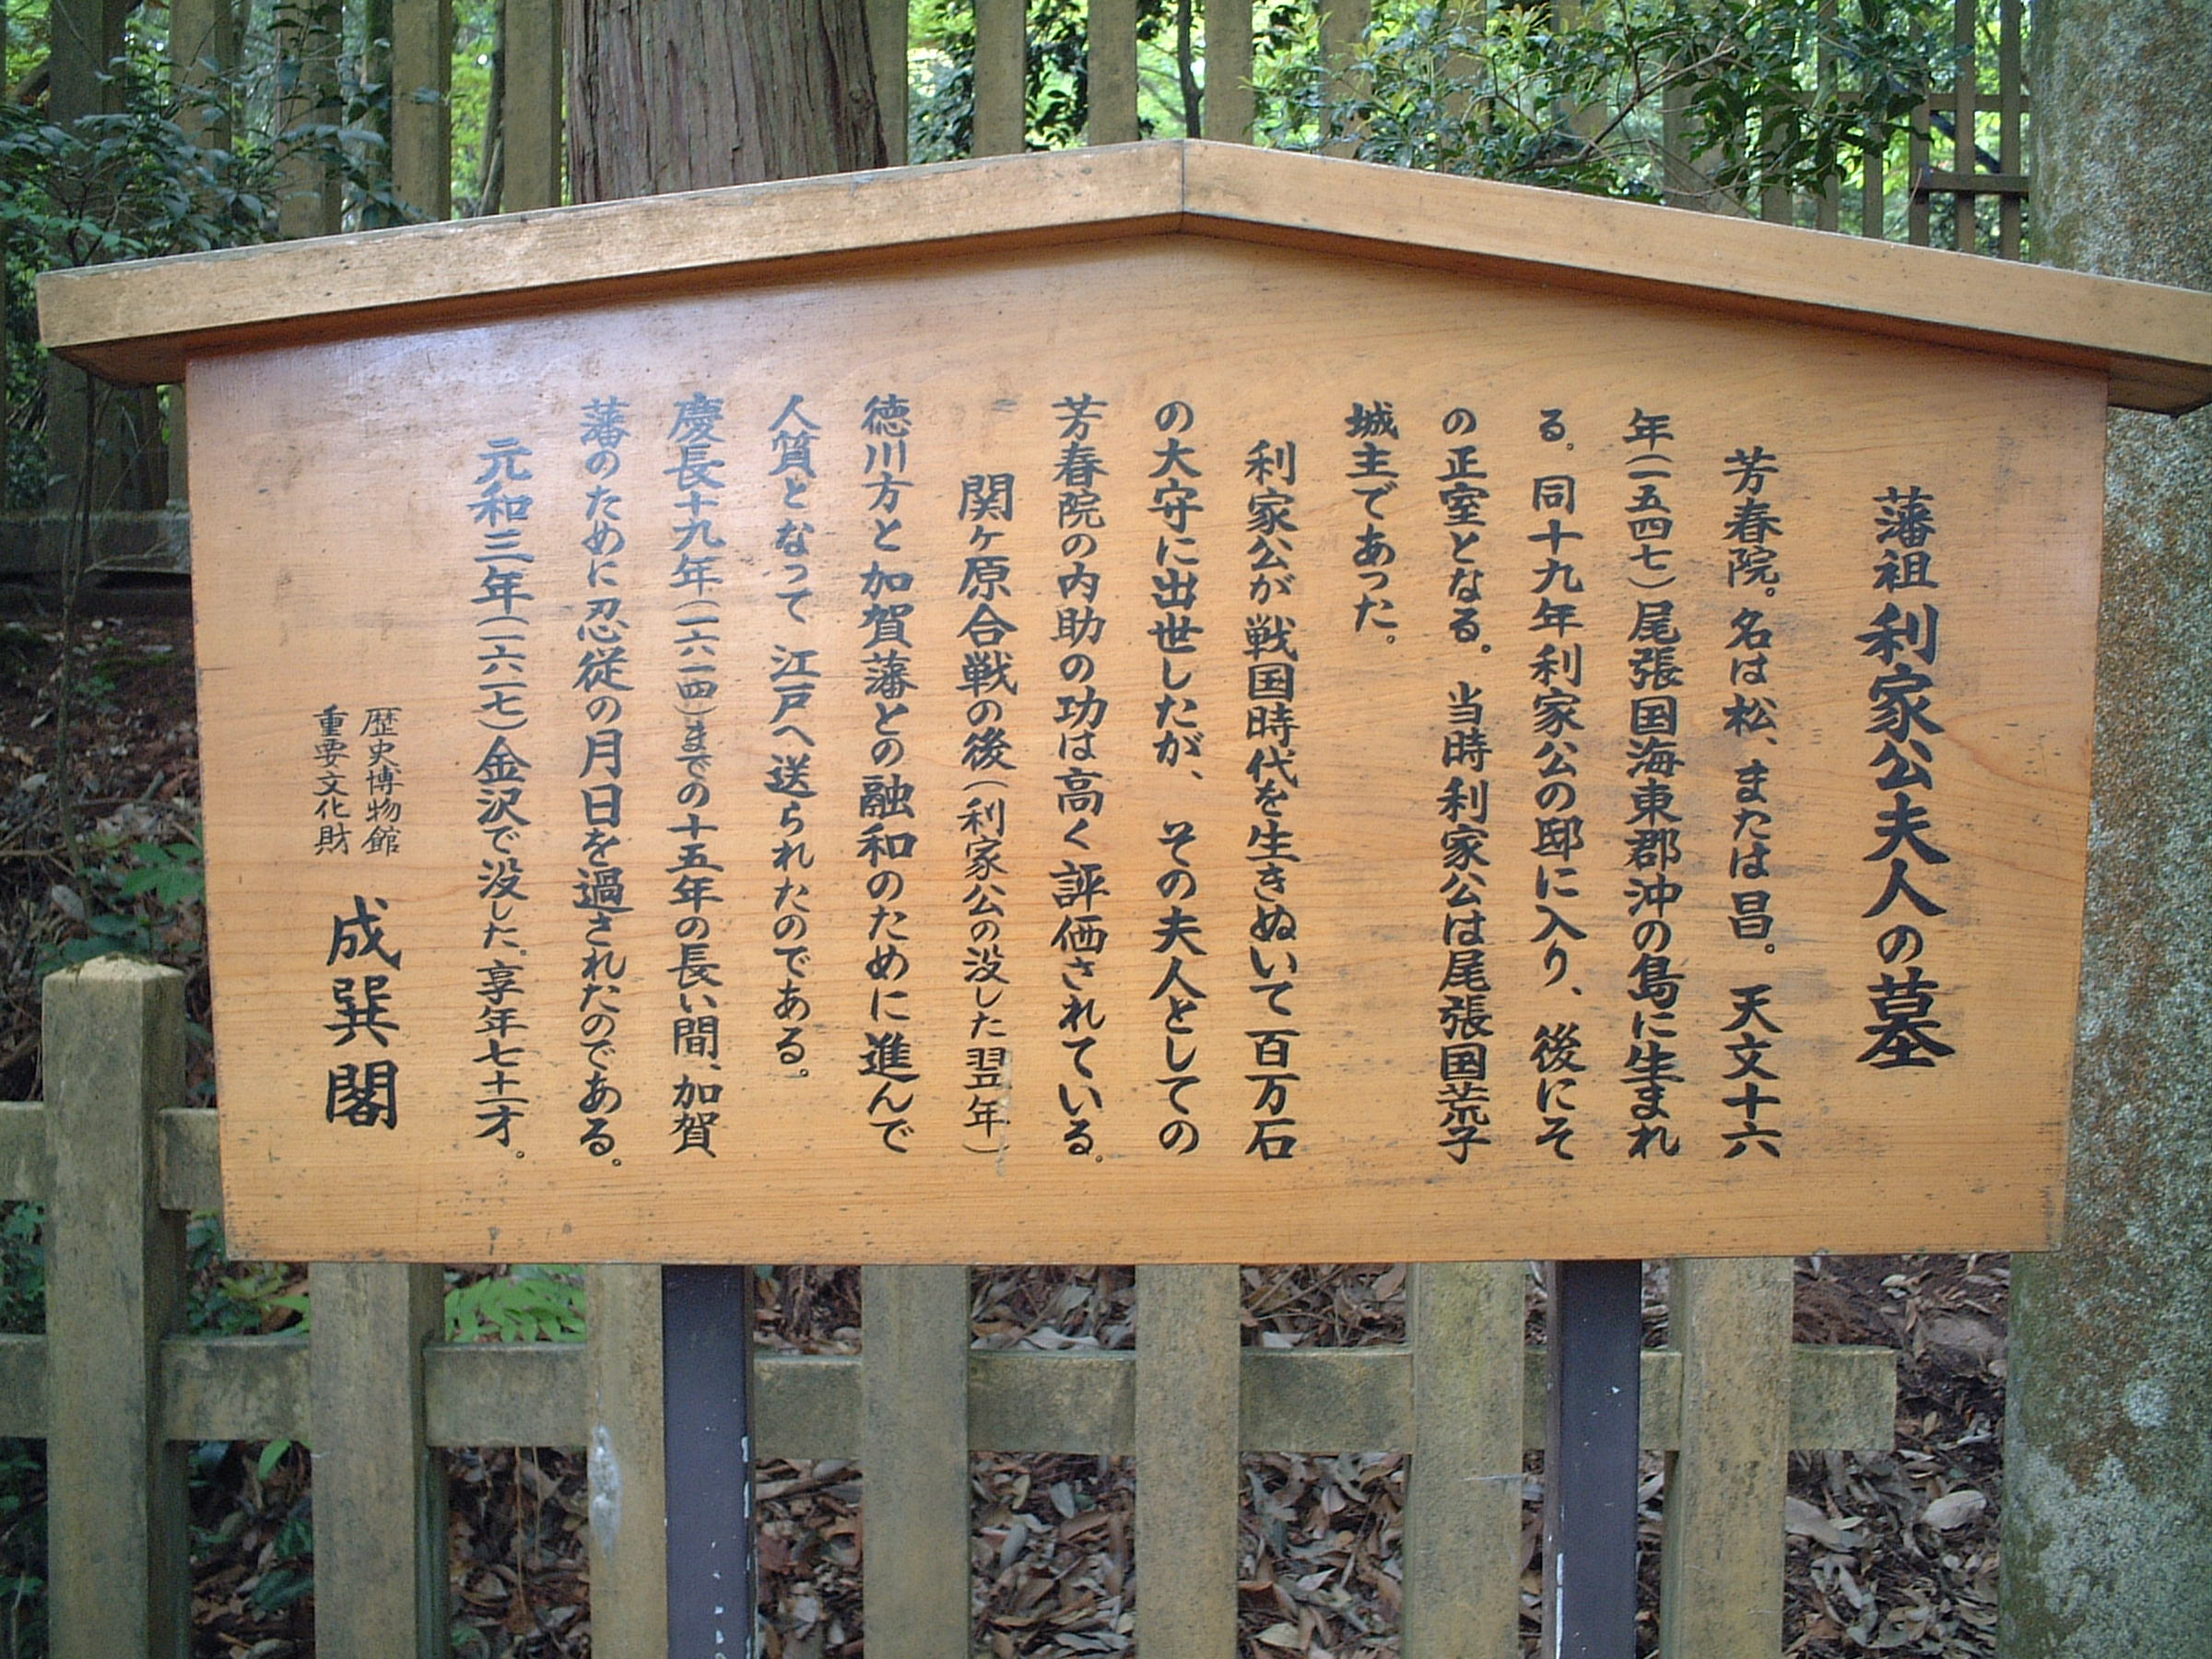 藩祖利家公夫人の墓
芳春院。名は松、または昌。天文十六
年(一五四七)尾張国海東郡沖の島に生まれ
る。同十九年利家公の邸に入り、後にそ
の正室となる。当時利家公は尾張国荒子
城主であった。
利家公が戦国時代を生きぬいて百万石
の大守に出世したが、その夫人としての
芳春院の内助の功は高く評価されている。
関ヶ原合戦の後(利家公の没した翌年)
徳川方と加賀藩との融和のために進んで
人質となって江戸へ送られたのである。
慶長十九年(一六一四)までの十五年の長い間、加賀
藩のために忍従の月日を過されたのである。
元和三年(一六一七)金沢で没した。享年七十一才。
歴史博物館
重要文化財
成巽閣